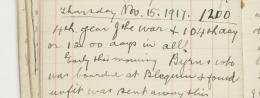 Thursday Nov. 15. 1917. 1200
4th year of the war & 104th day
or 1200 days in all!
Early this morning Byrns who
was boarded at Blequin & found
unfit was sent away this